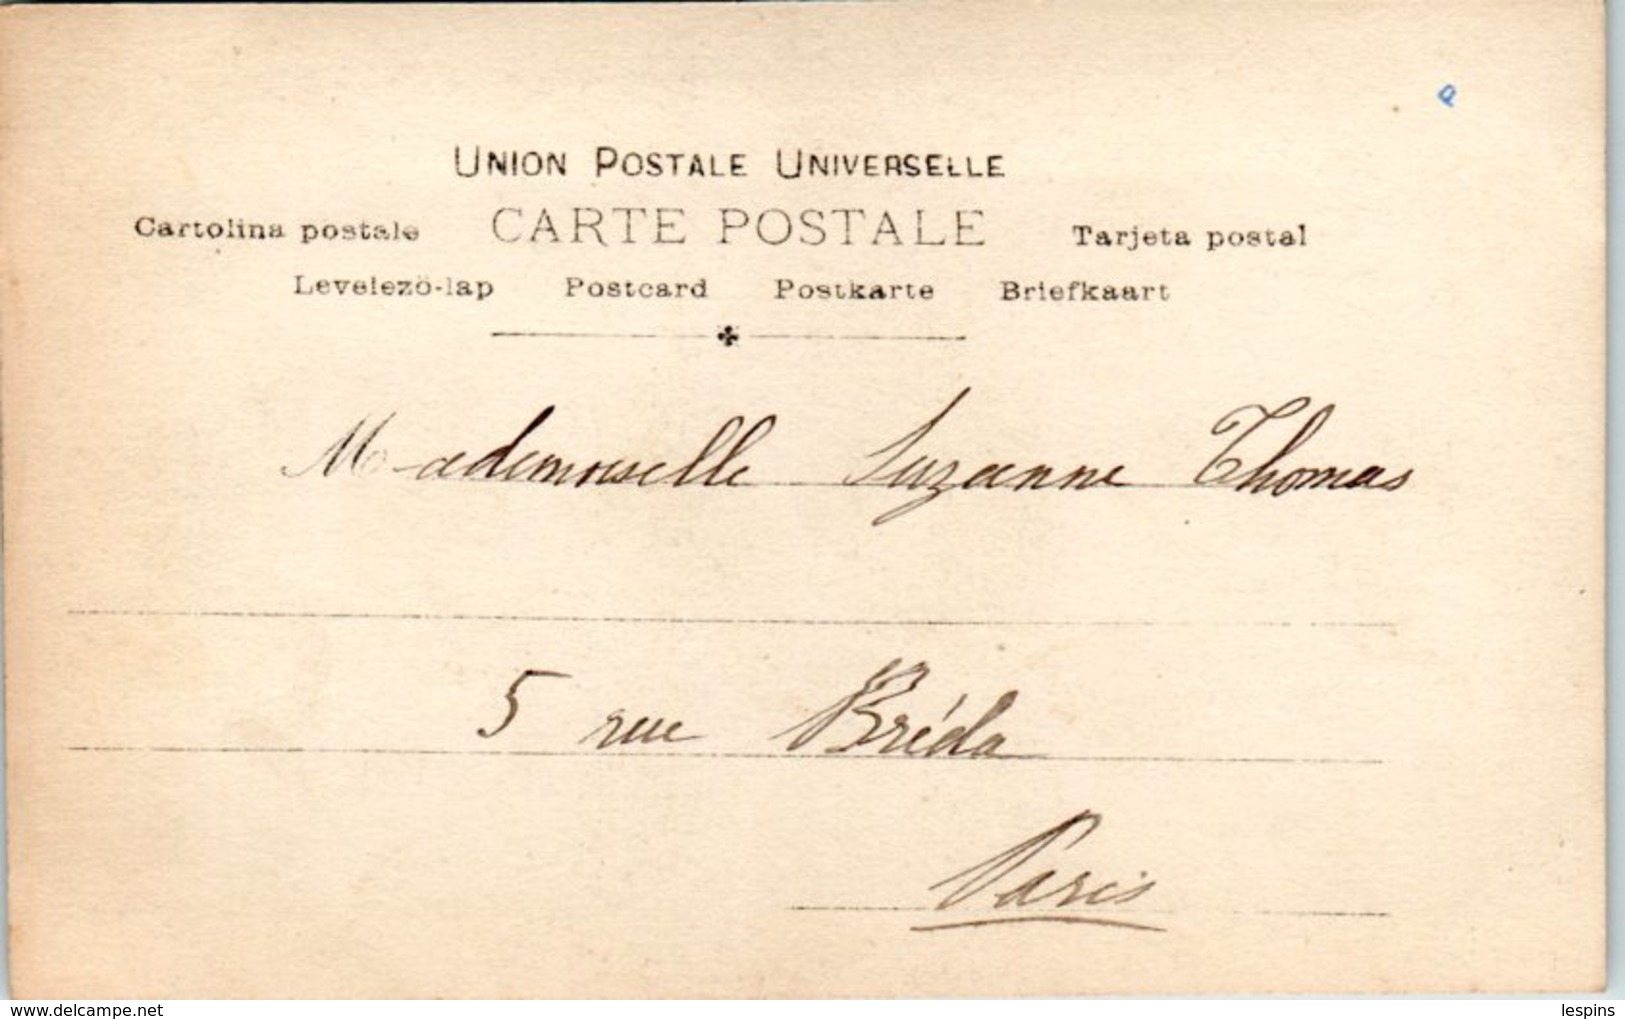 UNION POSTALE UNIVERSELLE
Cartolina postale CARTE POSTALE Tarjeta postal
Levelezö-lap Postcard Postkarte Briefkaart
Mademoiselle Suzanne Thomas
5 rue Bréda
Paris
www.delcampe.net lespins